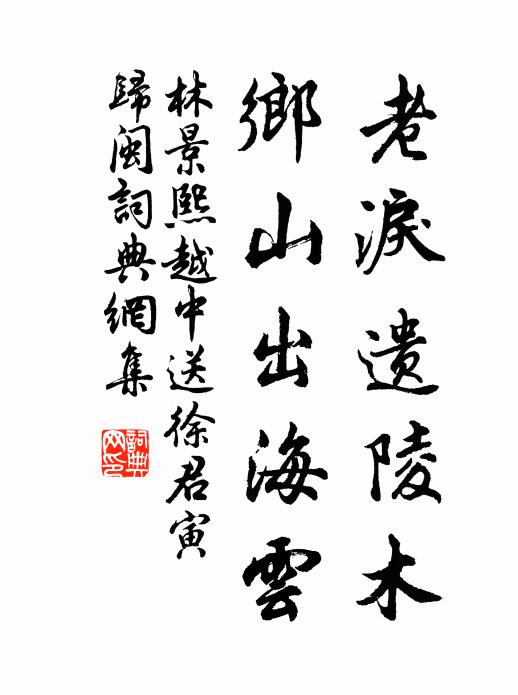 老淚遗陵木
鄉山出海雲
林景熙越中送徐君寅
歸閩詞典網集
詞典网印